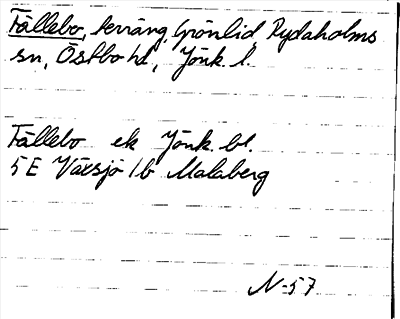 Fällebo, terräng, Grönlid, Rydaholms
sn, Östbo hd, Jönk. l.
Fällebo ek Jönk. bl.
5 E Växsjö 1b Malaberg
N-57